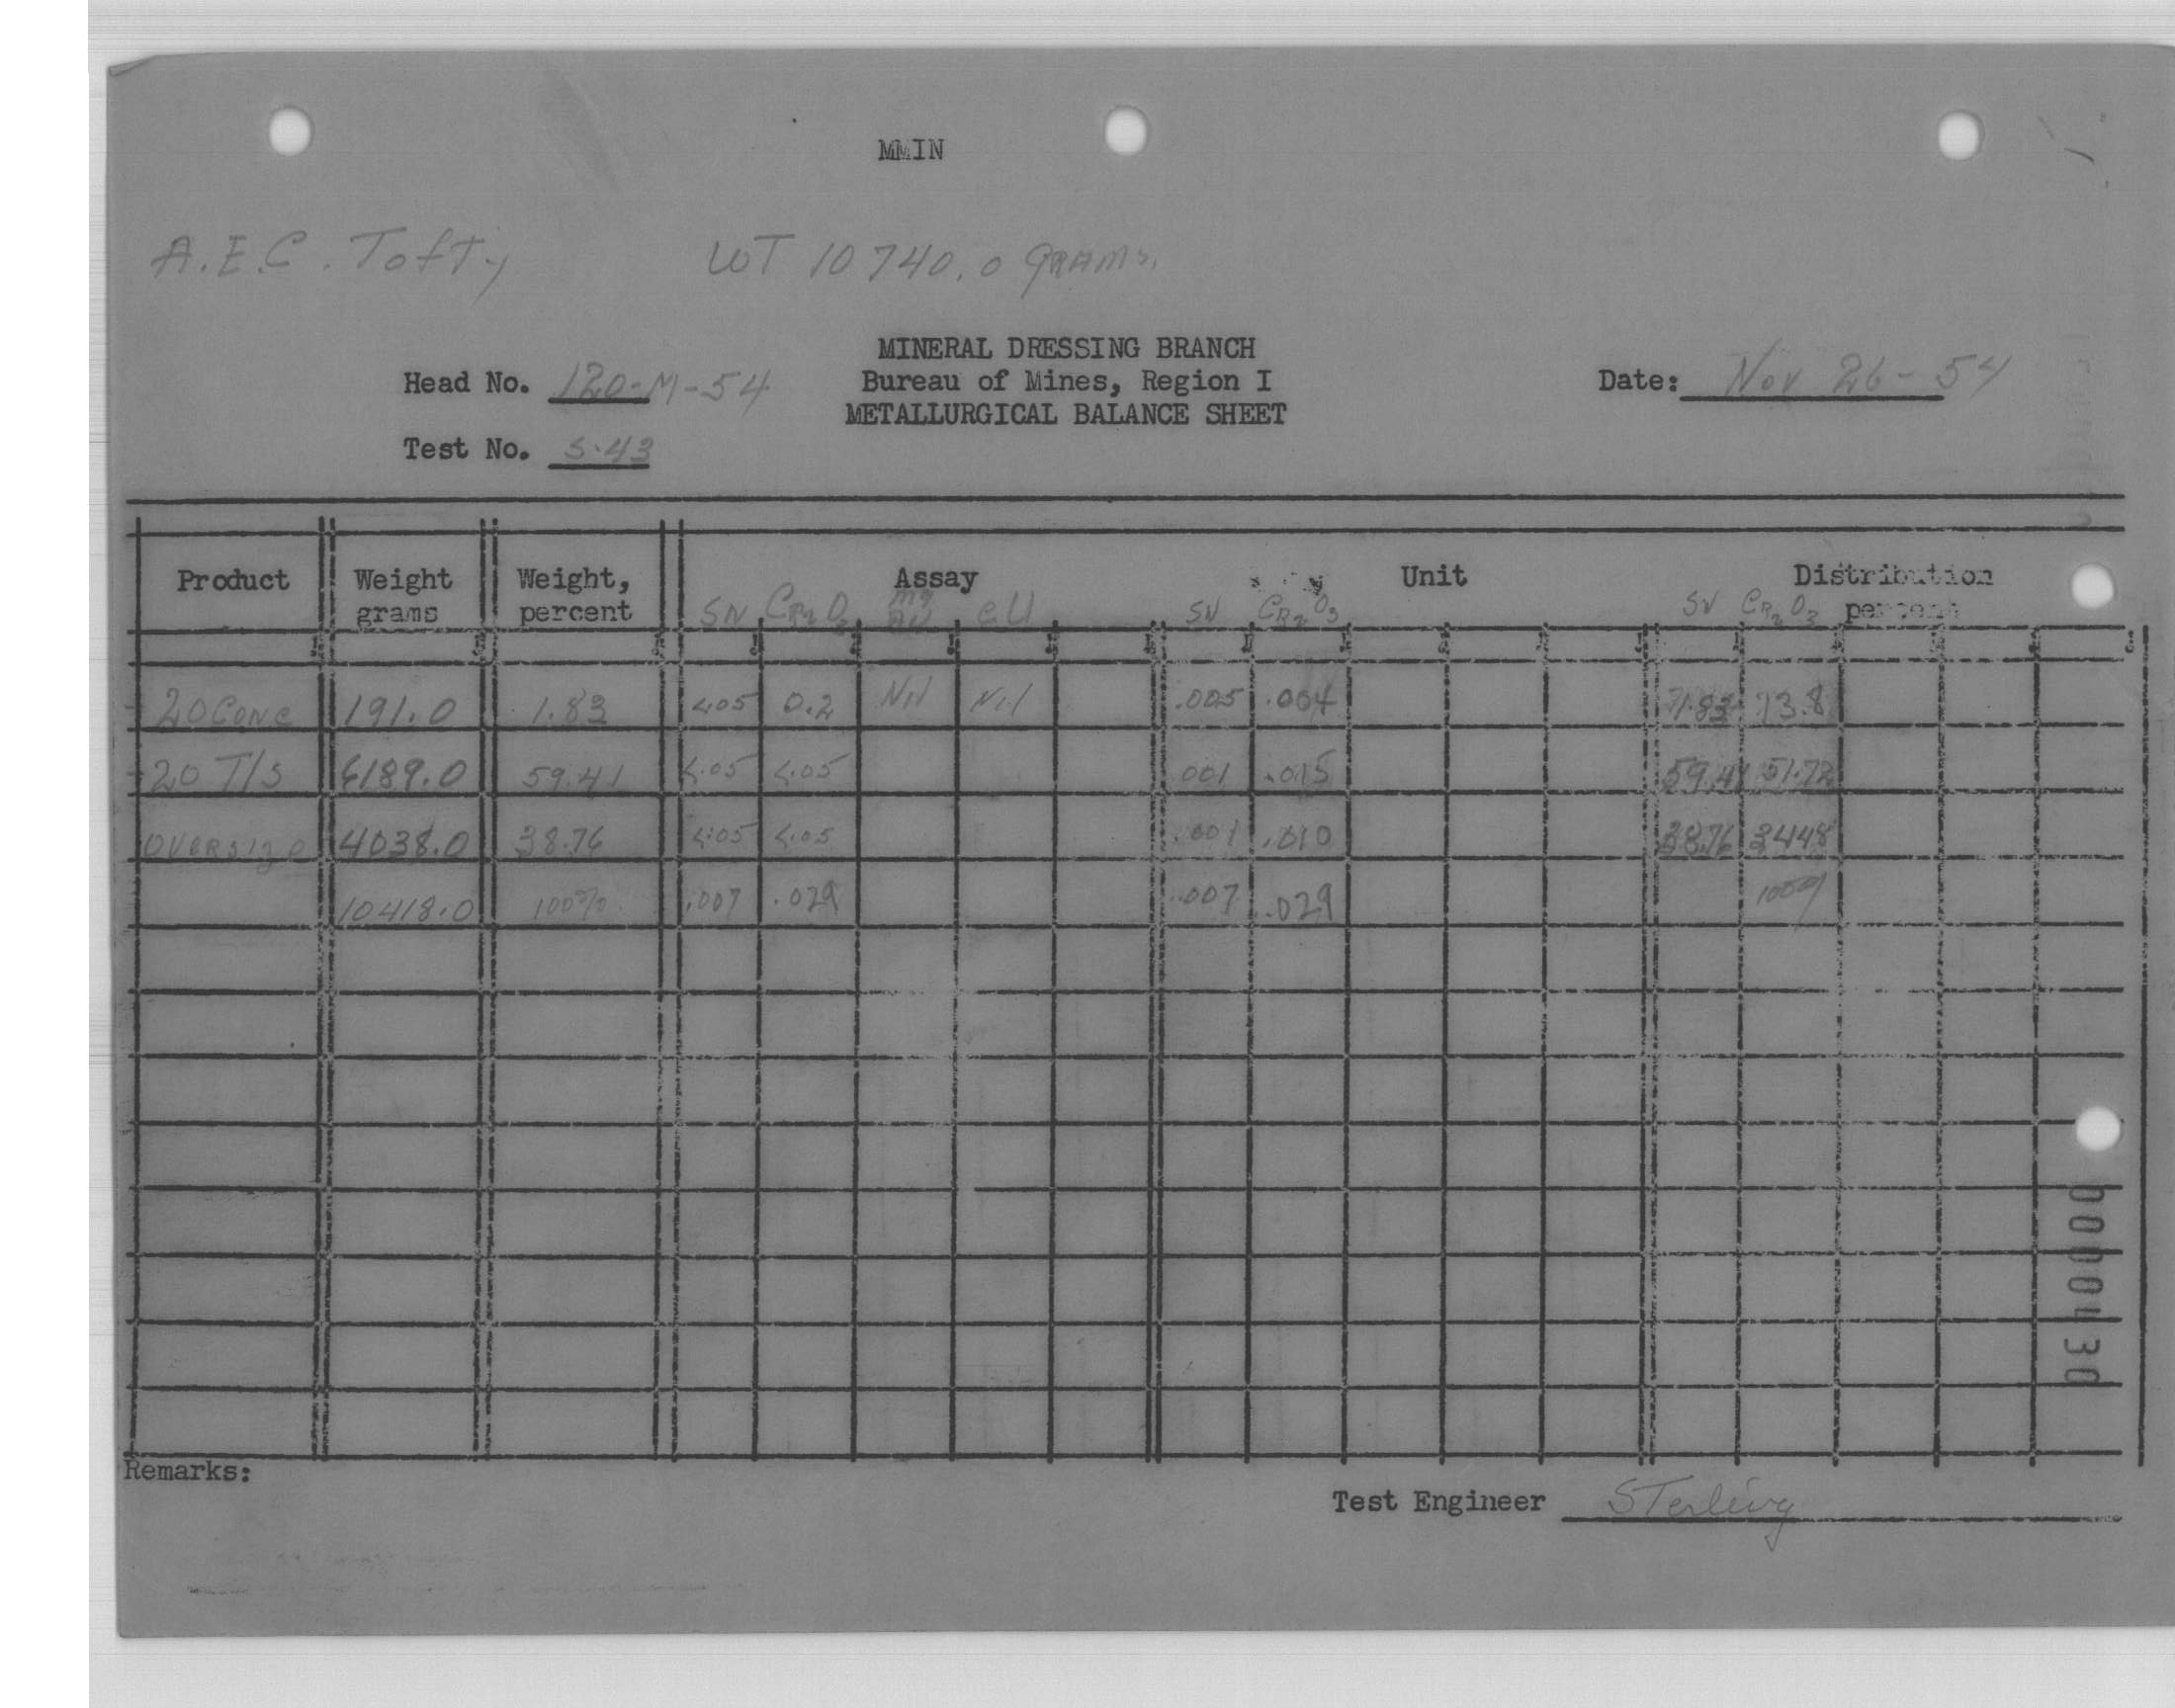 MMIN
A.E.C. Tofty WT 10740.0 GRAMS.
MINERAL DRESSING BRANCH
Head No. 120-M-54 Bureau of Mines, Region I Date: Nov 26-54
METALLURGICAL BALANCE SHEET
Test No. S-43
Product Weight grams Weight, percent Assay Unit Distribution percent
SN CR2O3 Mg AU eU SN CR2O3 SN CR2O3
20 Conc 191.0 1.83 <.05 0.2 Nil Nil .005 .004 13.8
20 T/s 6189.0 59.41 <.05 <.05 .001 .015 59.41 51.72
OVERSIZE 4038.0 38.76 <.05 <.05 .001 .010 38.76 34.48
10418.0 100% .007 .029 .007 .029 100%
Remarks:
Test Engineer Sterling
000430